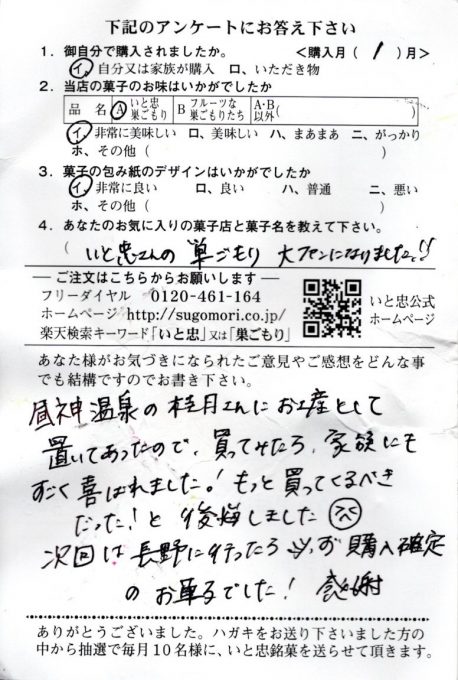 下記のアンケートにお答え下さい
1. 御自分で購入されましたか。 <購入月( 1 )月>
イ、自分又は家族が購入 ロ、いただき物
2. 当店の菓子のお味はいかがでしたか
品 名 A いと忠巣ごもり B フルーツな巣ごもりたち A・B以外( )
イ、非常に美味しい ロ、美味しい ハ、まあまあ ニ、がっかり
ホ、その他( )
3. 菓子の包み紙のデザインはいかがでしたか
イ、非常に良い ロ、良い ハ、普通 ニ、悪い
ホ、その他( )
4. あなたのお気に入りの菓子店と菓子名を教えて下さい。
( いと忠さんの 巣ごもり 大ファンになりました!!
ご注文はこちらからお願いします
フリーダイヤル 0120-461-164
ホームページ http://sugomori.co.jp/
楽天検索キーワード「いと忠」又は「巣ごもり」
いと忠公式
ホームページ
あなた様がお気づきになられたご意見やご感想をどんな事
でも結構ですのでお書き下さい。
昼神温泉の桂月さんにお土産として
置いてあったので、買ってみたら、家族にも
すごく喜ばれました!もっと買ってくるべき
だった!と後悔しました
次回は長野に行ったら 必ず 購入確定
のお菓子でした! 感謝
ありがとうございました。ハガキをお送り下さいました方の
中から抽選で毎月10名様に、いと忠銘菓を送らせて頂きます。